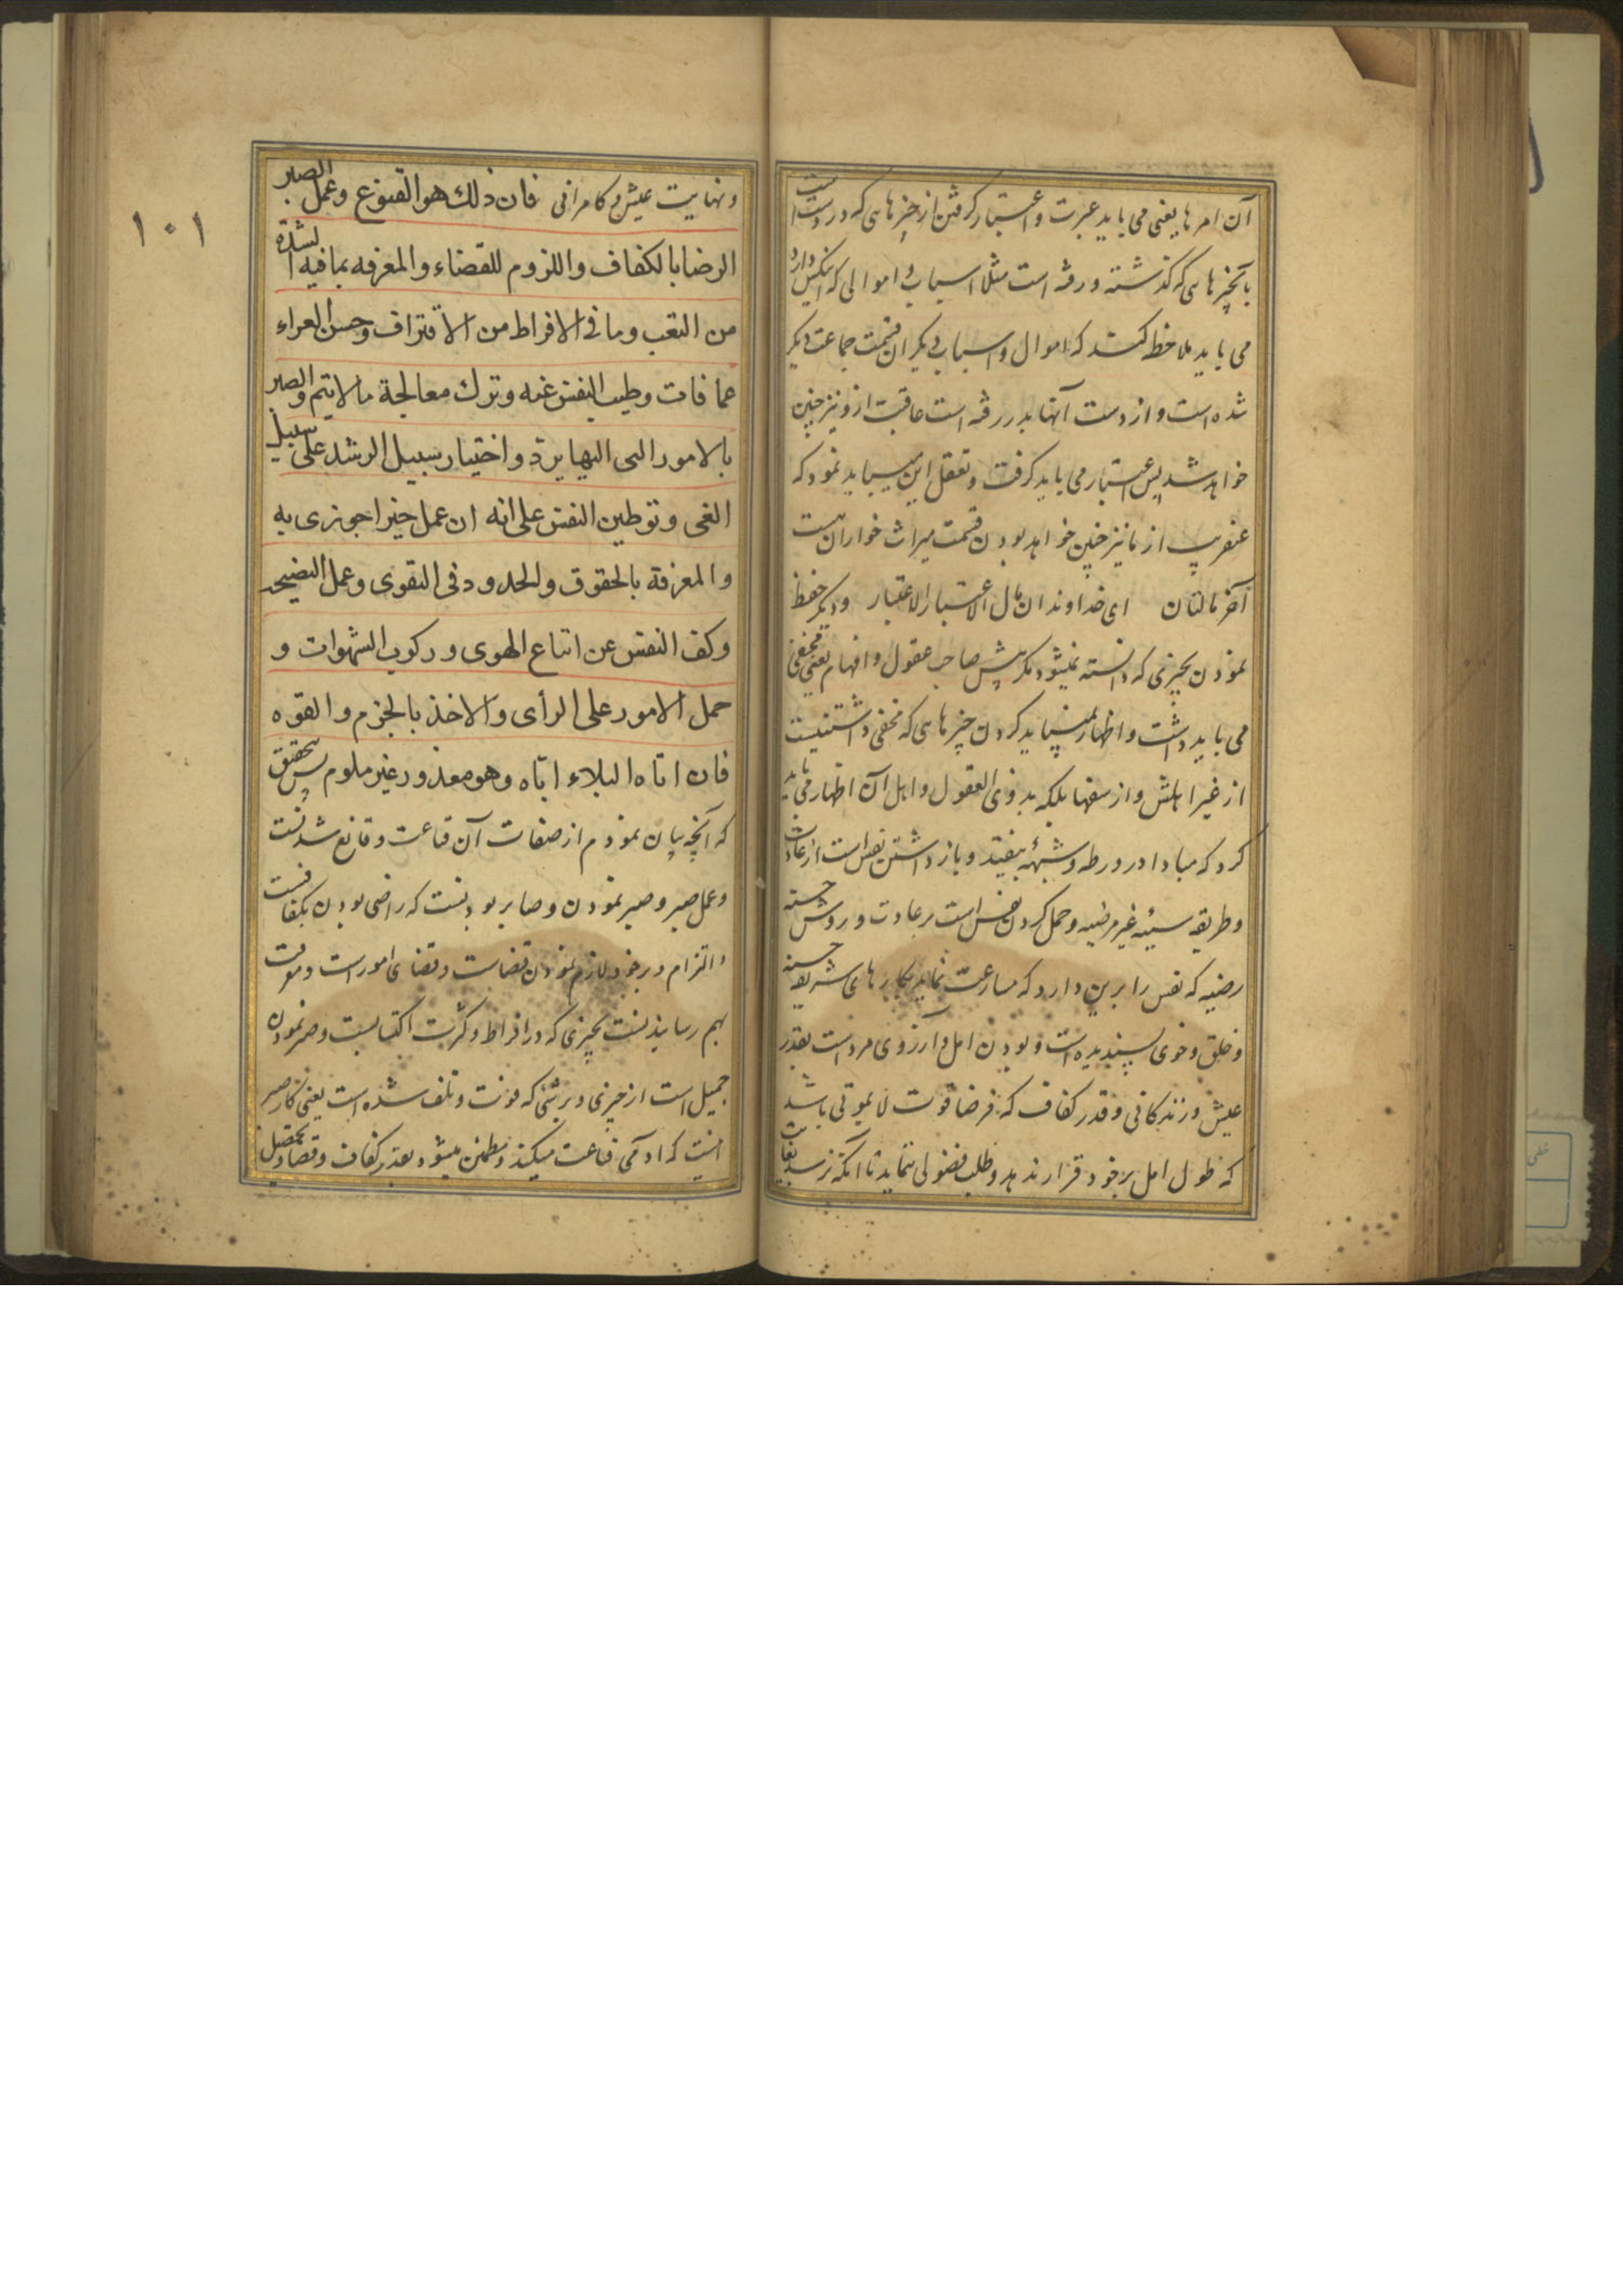 آن امر ها یعنی می باید عبرت و اعتبار گرفتن از چیزهایی که در دست است
بآنچیزهایی که گذشته و رفته است مثلا اسباب و اموالی که اینکس دارد
می باید ملاحظه کند که اموال و اسباب دیگران قسمت جماعت دیگر
شده است و از دست آنها بدر رفته است عاقبت از و نیز چنین
خواهد شد پس اعتبار می باید گرفت و تعقل این میباید نمود که
عنقریب از ما نیز چنین خواهد بودن قسمت میراث خواران است
آخر مالتان ای خداوندان مال الاعتبار الاعتبار و دیگر حفظ
نمودن بچیزی که دانسته نمیشود مگر پیش صاحب عقول و افهام یعنی مخفی
می باید داشت و اظهار نمیباید کردن چیزهایی که مخفی داشتنیست
از غیر اهلش و از سفها بلکه بذوی العقول و اهل آن اظهار می باید
کرد که مبادا در ورطه و شبهه بیفتد و باز داشتن نفس است از عادت
و طریقه سیئه غیر مرضیه و حمل کردن نفس است بر عادت و روش حسنه
رضیه که نفس را برین دارد که مسارعت نماید بکارهای شریفه حسنه
و خلق و خوی پسندیده است و بودن امل و آرزوی مرد است بقدر
عیش و زندگانی و قدر کفاف که فرضا قوت لا یموتی باشد
که طول امل بر خود قرار ندهد و طلب فضولی ننماید تا آنکه نرسد بغایت
١٠١
و نهایت عیش و کامرانی فان ذلك هو القنوع و عمل الصبر
الرضا بالكفاف و اللزوم للقضاء و المعرفه بما فيه الشدة
من التعب وما فى الافراط من الاقتراف و حسن العزاء
عما فات و طيب النفس عنه و ترك معالجة ما لا يتم و الصبر
بالامور التى اليها يردّ و اختيار سبيل الرشد على سبيل
الغى و توطين النفس على انه ان عمل خيرا جوزى به
و المعرفة بالحقوق و الحدود فى التقوى و عمل النصيحه
و كف النفس عن اتباع الهوى و ركوب الشهوات و
حمل الامور على الرأى و الاخذ بالحزم و القوه
فان اتاه البلاء اتاه و هو معذور غير ملوم پس بتحقیق
که آنچه بیان نمودم از صفات آن قناعت و قانع شدنست
و عمل صبر و صبر نمودن و صابر بودنست که راضی بودن بکفافست
و التزام و بر خود لازم نمودن قضاست و قضای امور است و معرفت
بهم رسانیدنست بچیزی که در افراط و کثرت اکتسابست و صبر نمودن
جمیل است از چیزی و بر شئی که فوت و تلف شده است یعنی کار صبر
اینست که آدمی قناعت میکند و مطمئن میشود بقدر کفاف و تحصیل